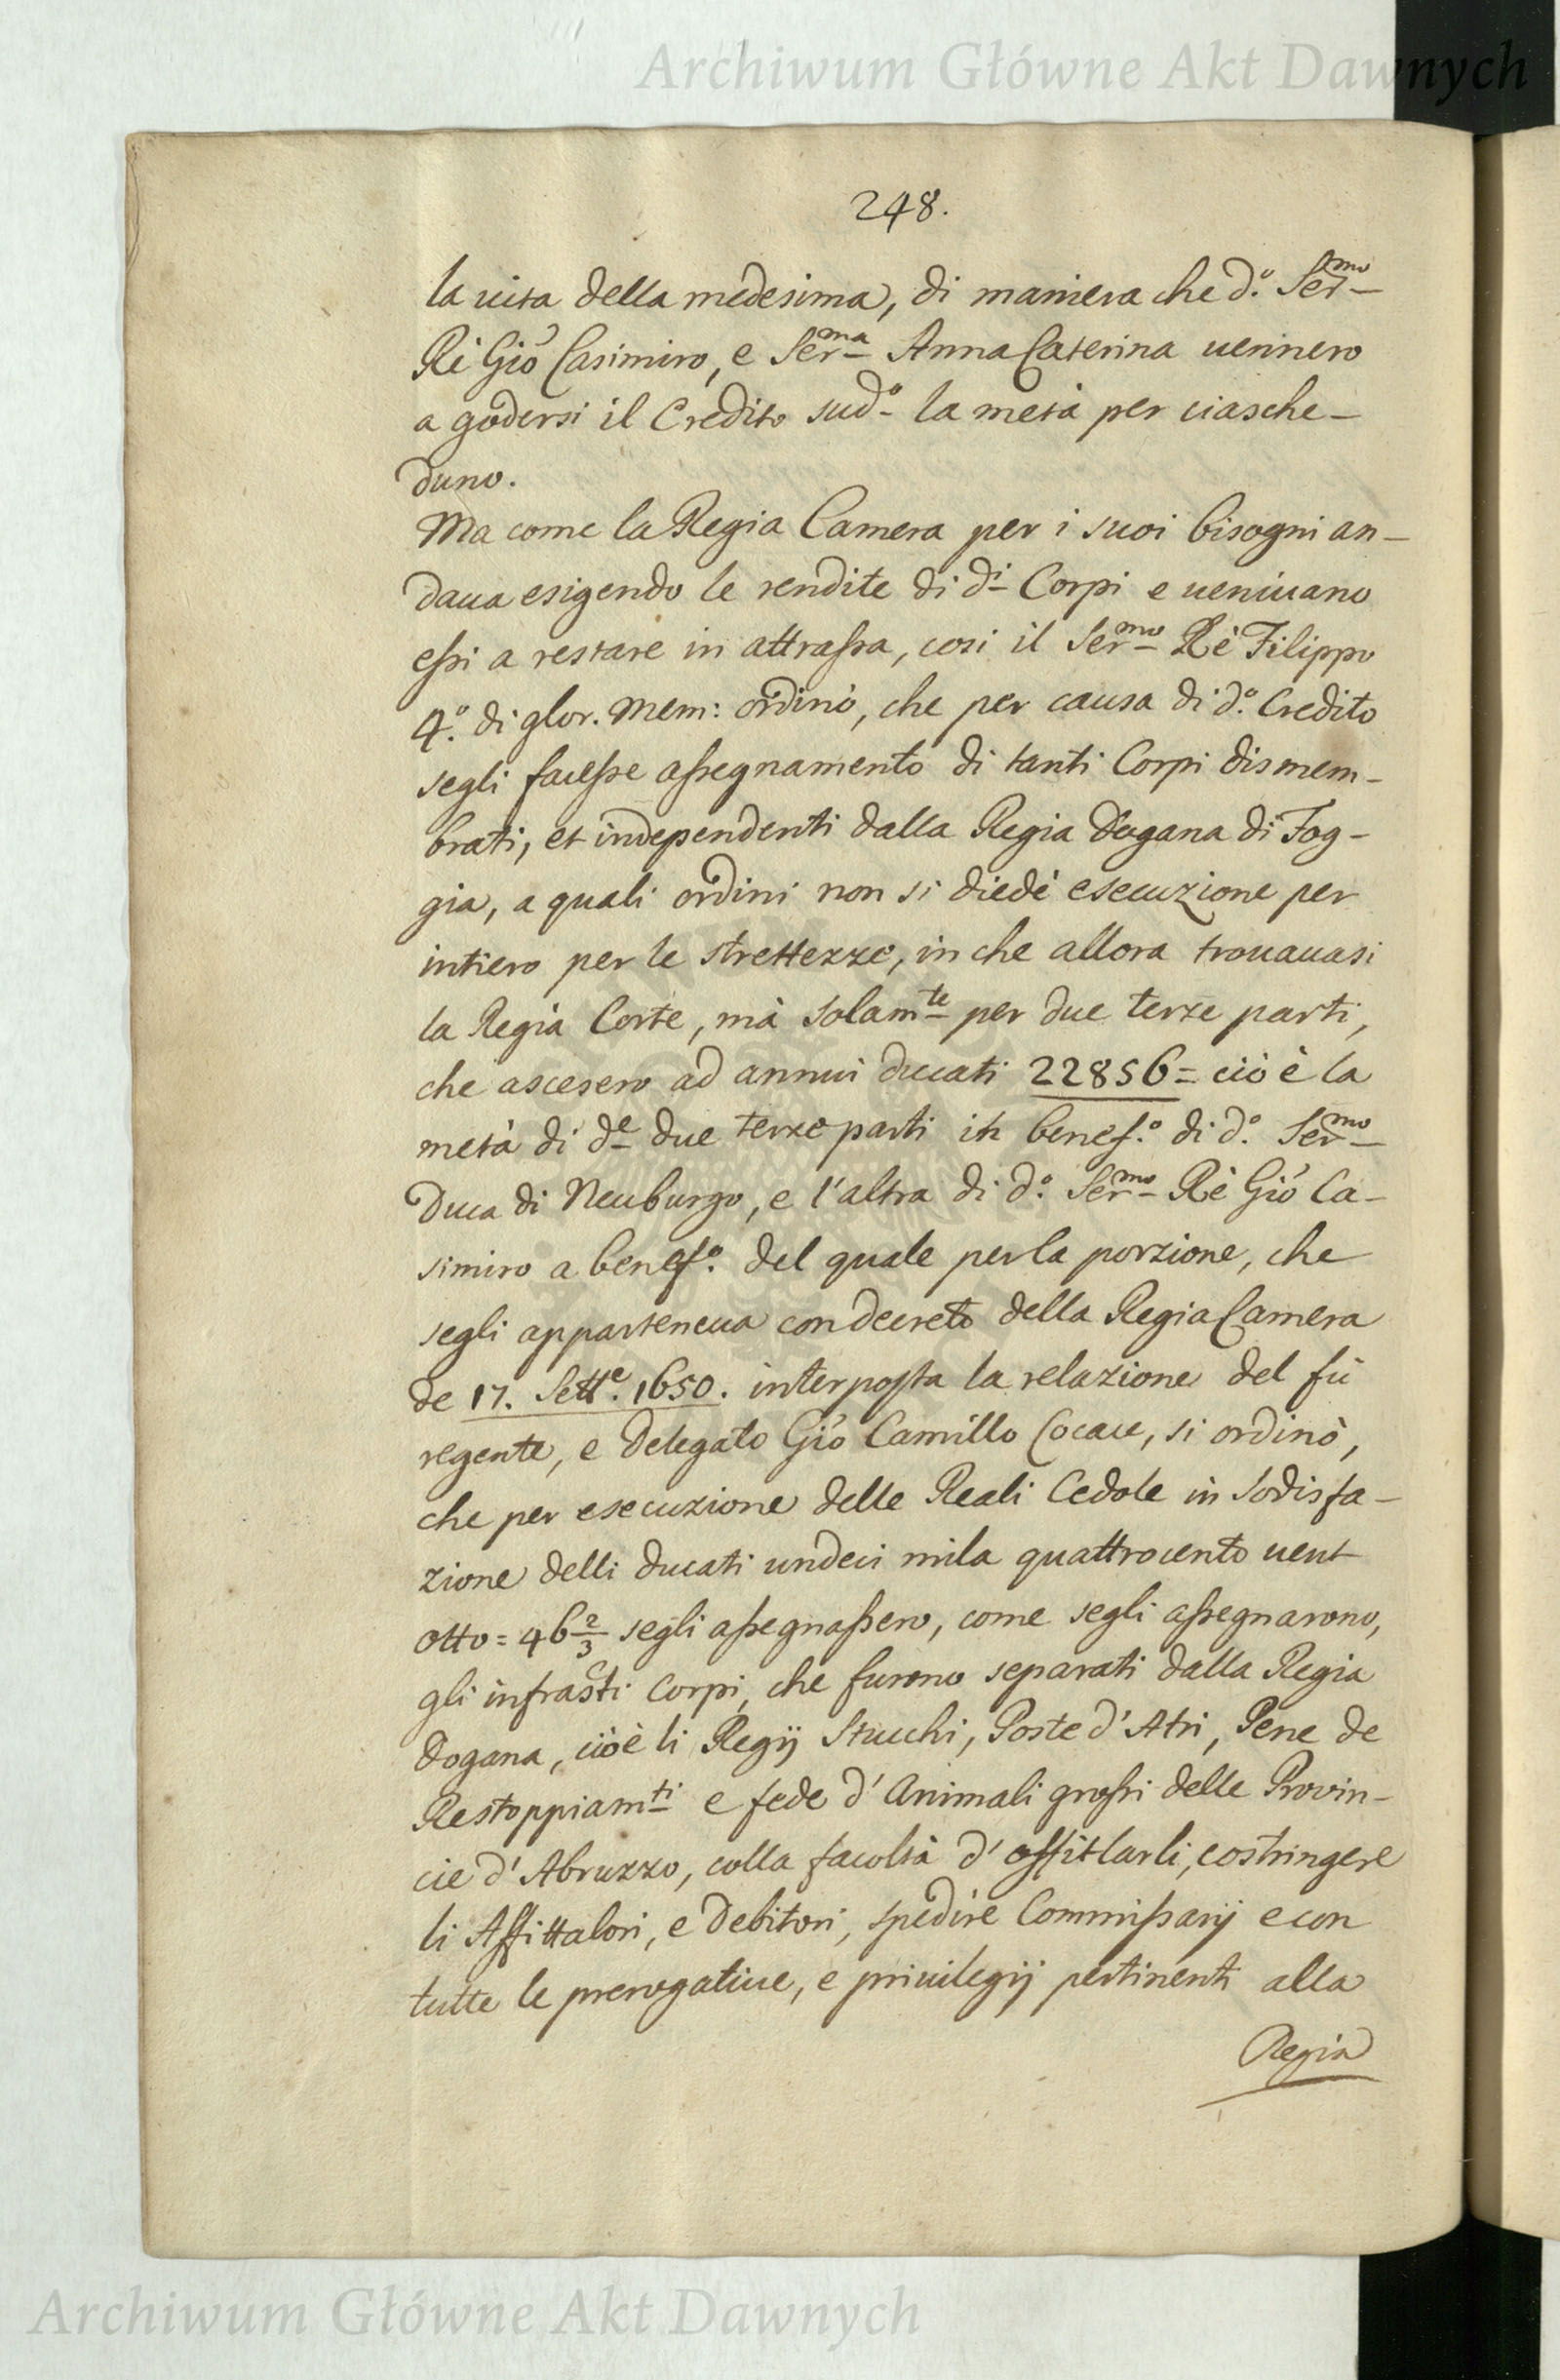 Archiwum Główne Akt Dawnych
248.
la uita della medesima, di maniera che d.º Ser.mo
Rè Giò Casimiro, e Ser.ma Anna Caterina uennero
a godersi il Credito sud.º la metà per ciasche-
duno.
Ma come la Regia Camera per i suoi bisogni an-
daua esigendo le rendite di d.i Corpi e ueniuano
essi a restare in attrassa, cosi il Ser.mo Rè Filippo
4.º di glor. mem: ordinò, che per causa di d.º Credito
segli facesse assegnamento di tanti Corpi dismem-
brati, et independenti dalla Regia Dogana di Fog-
gia, a quali ordini non si diede esecuzione per
intiero per le strettezze, in che allora trouauasi
la Regia Corte, mà solam.te per due terze parti,
che ascesero ad annui ducati 22856= ciò è la
metà di d.e due terze parti in benef.º di d.º Ser.mo
Duca di Neuburgo, e l'altra di d.º Ser.mo Rè Giò Ca-
simiro a benef.º del quale per la porzione, che
segli apparteneua con decreto della Regia Camera
de 17. Sett.e 1650. interposta la relazione del fù
regente, e Delegato Giò Camillo Cocace, si ordinò,
che per esecuzione delle Reali Cedole in Sodisfa-
zione delli ducati undeci mila quattrocento uent
otto = 46 2/3 segli assegnassero, come segli assegnarono,
gli infrasti Corpi, che furono separati dalla Regia
Dogana, ciòè li Regij Stucchi, Poste d'Atri, Pene de
Restoppiam.ti e fede d'Animali grossi delle Provin-
cie d'Abruzzo, colla facoltà d'affittarli, costringere
li Affittatori, e Debitori, spedire Commissarij e con
tutte le prerogatiue, e priuilegij pertinenti alla
Regia
Archiwum Główne Akt Dawnych